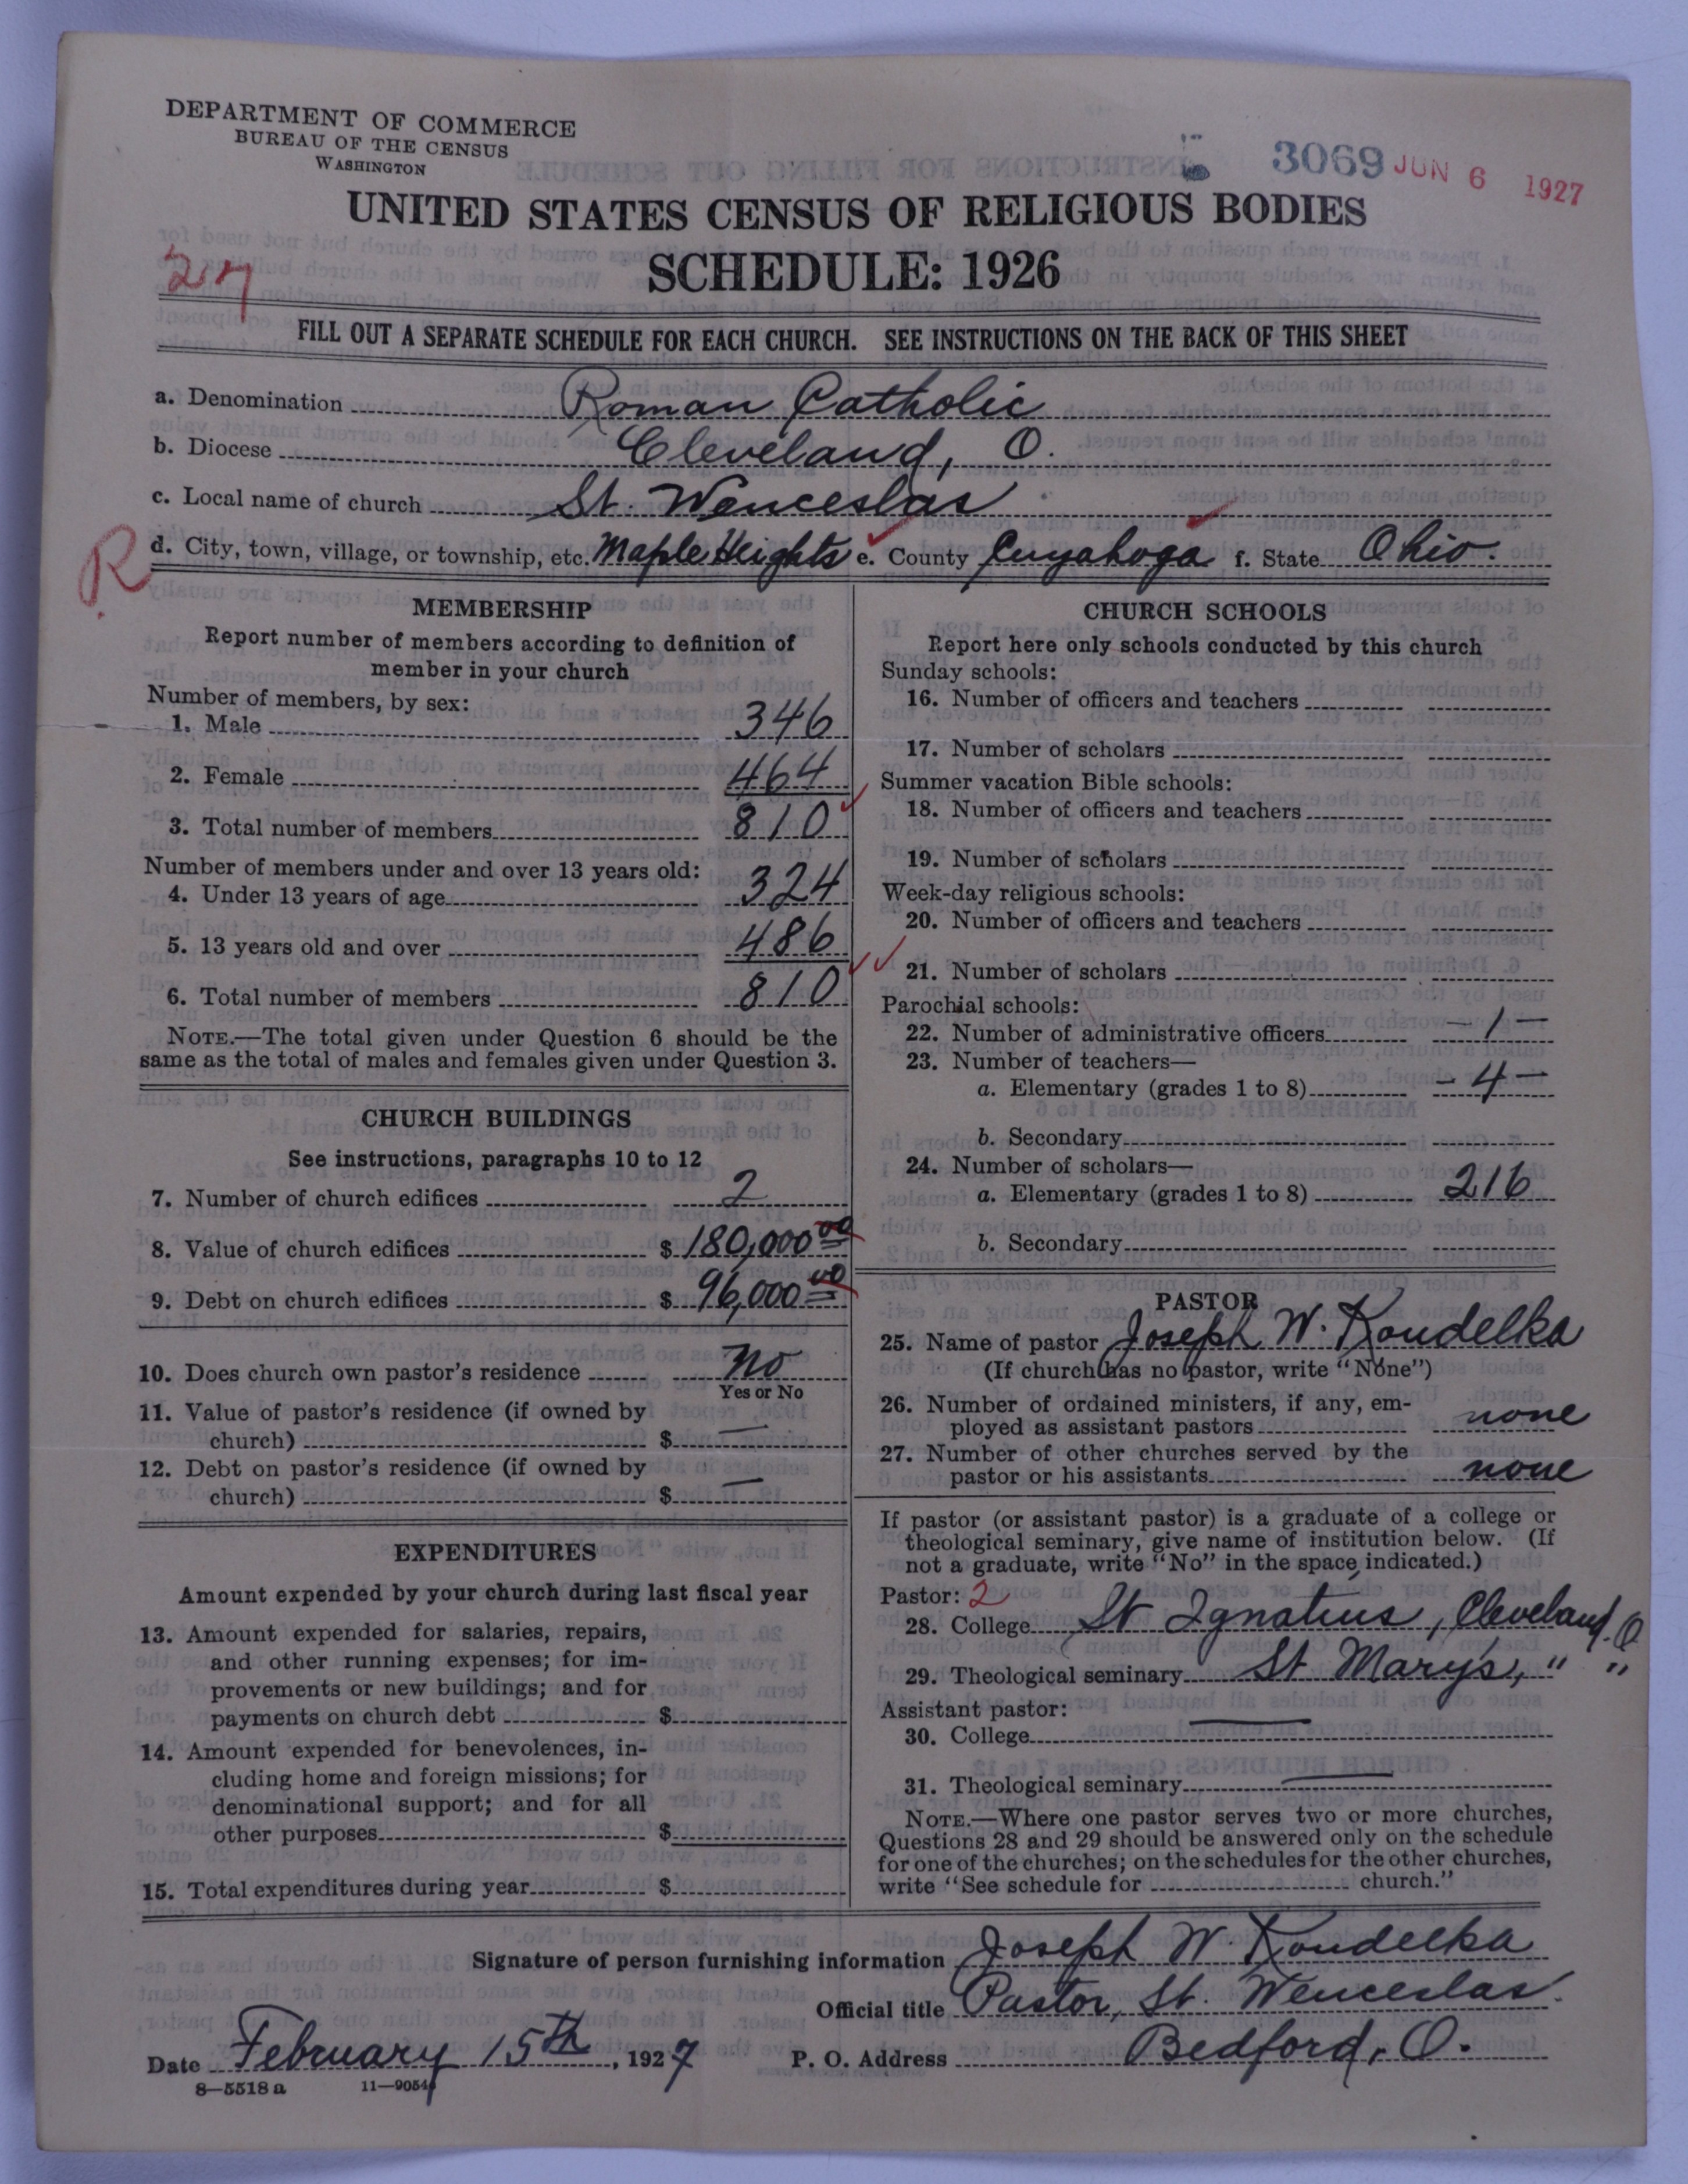 DEPARTMENT OF COMMERCE
BUREAU OF THE CENSUS
WASHINGTON
3069 JUN 6 1927
UNITED STATES CENSUS OF RELIGIOUS BODIES
SCHEDULE: 1926
FILL OUT A SEPARATE SCHEDULE FOR EACH CHURCH. SEE INSTRUCTIONS ON THE BACK OF THIS SHEET
a. Denomination Roman Catholic
b. Diocese Cleveland, O.
c. Local name of church St. Wenceslas
R
d. City, town, village, or township, etc. Maple Heights e. County Cuyahoga f. State Ohio.
MEMBERSHIP
Report number of members according to definition of
member in your church
Number of members, by sex:
1. Male 346
2. Female 464
3. Total number of members 810
Number of members under and over 13 years old:
4. Under 13 years of age 324
5. 13 years old and over 486
6. Total number of members 810
NOTE.—The total given under Question 6 should be the
same as the total of males and females given under Question 3.
CHURCH BUILDINGS
See instructions, paragraphs 10 to 12
7. Number of church edifices 2
8. Value of church edifices $ 180,000 00
9. Debt on church edifices $ 96,000 00
10. Does church own pastor's residence No
Yes or No
11. Value of pastor's residence (if owned by
church) $ —
12. Debt on pastor's residence (if owned by
church) $ —
EXPENDITURES
Amount expended by your church during last fiscal year
13. Amount expended for salaries, repairs,
and other running expenses; for im-
provements or new buildings; and for
payments on church debt $
14. Amount expended for benevolences, in-
cluding home and foreign missions; for
denominational support; and for all
other purposes $
15. Total expenditures during year $
CHURCH SCHOOLS
Report here only schools conducted by this church
Sunday schools:
16. Number of officers and teachers
17. Number of scholars
Summer vacation Bible schools:
18. Number of officers and teachers
19. Number of scholars
Week-day religious schools:
20. Number of officers and teachers
21. Number of scholars
Parochial schools:
22. Number of administrative officers – 1 –
23. Number of teachers—
a. Elementary (grades 1 to 8) – 4 –
b. Secondary
24. Number of scholars—
a. Elementary (grades 1 to 8) 216
b. Secondary
PASTOR
25. Name of pastor Joseph W. Koudelka
(If church has no pastor, write "None")
26. Number of ordained ministers, if any, em-
ployed as assistant pastors none
27. Number of other churches served by the
pastor or his assistants none
If pastor (or assistant pastor) is a graduate of a college or
theological seminary, give name of institution below. (If
not a graduate, write "No" in the space indicated.)
Pastor: 2
28. College St Ignatius, Cleveland, O
29. Theological seminary St Mary's, " "
Assistant pastor:
30. College —
31. Theological seminary —
NOTE.—Where one pastor serves two or more churches,
Questions 28 and 29 should be answered only on the schedule
for one of the churches; on the schedules for the other churches,
write "See schedule for church."
Signature of person furnishing information Joseph W. Koudelka
Official title Pastor, St. Wenceslas.
Date February 15th, 1927 P. O. Address Bedford, O.
8—5518 a